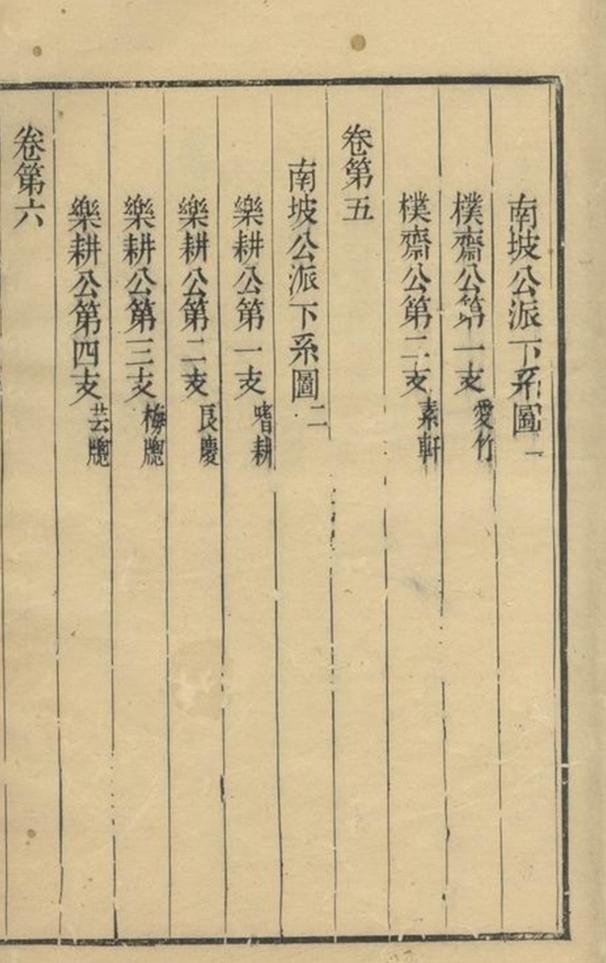 南坡公派下系圖一
樸齋公第一支愛竹
樸齋公第二支素軒
卷第五
南坡公派下系圖二
樂耕公第一支嗜耕
樂耕公第二支長慶
樂耕公第三支梅牕
樂耕公第四支芸牕
卷第六